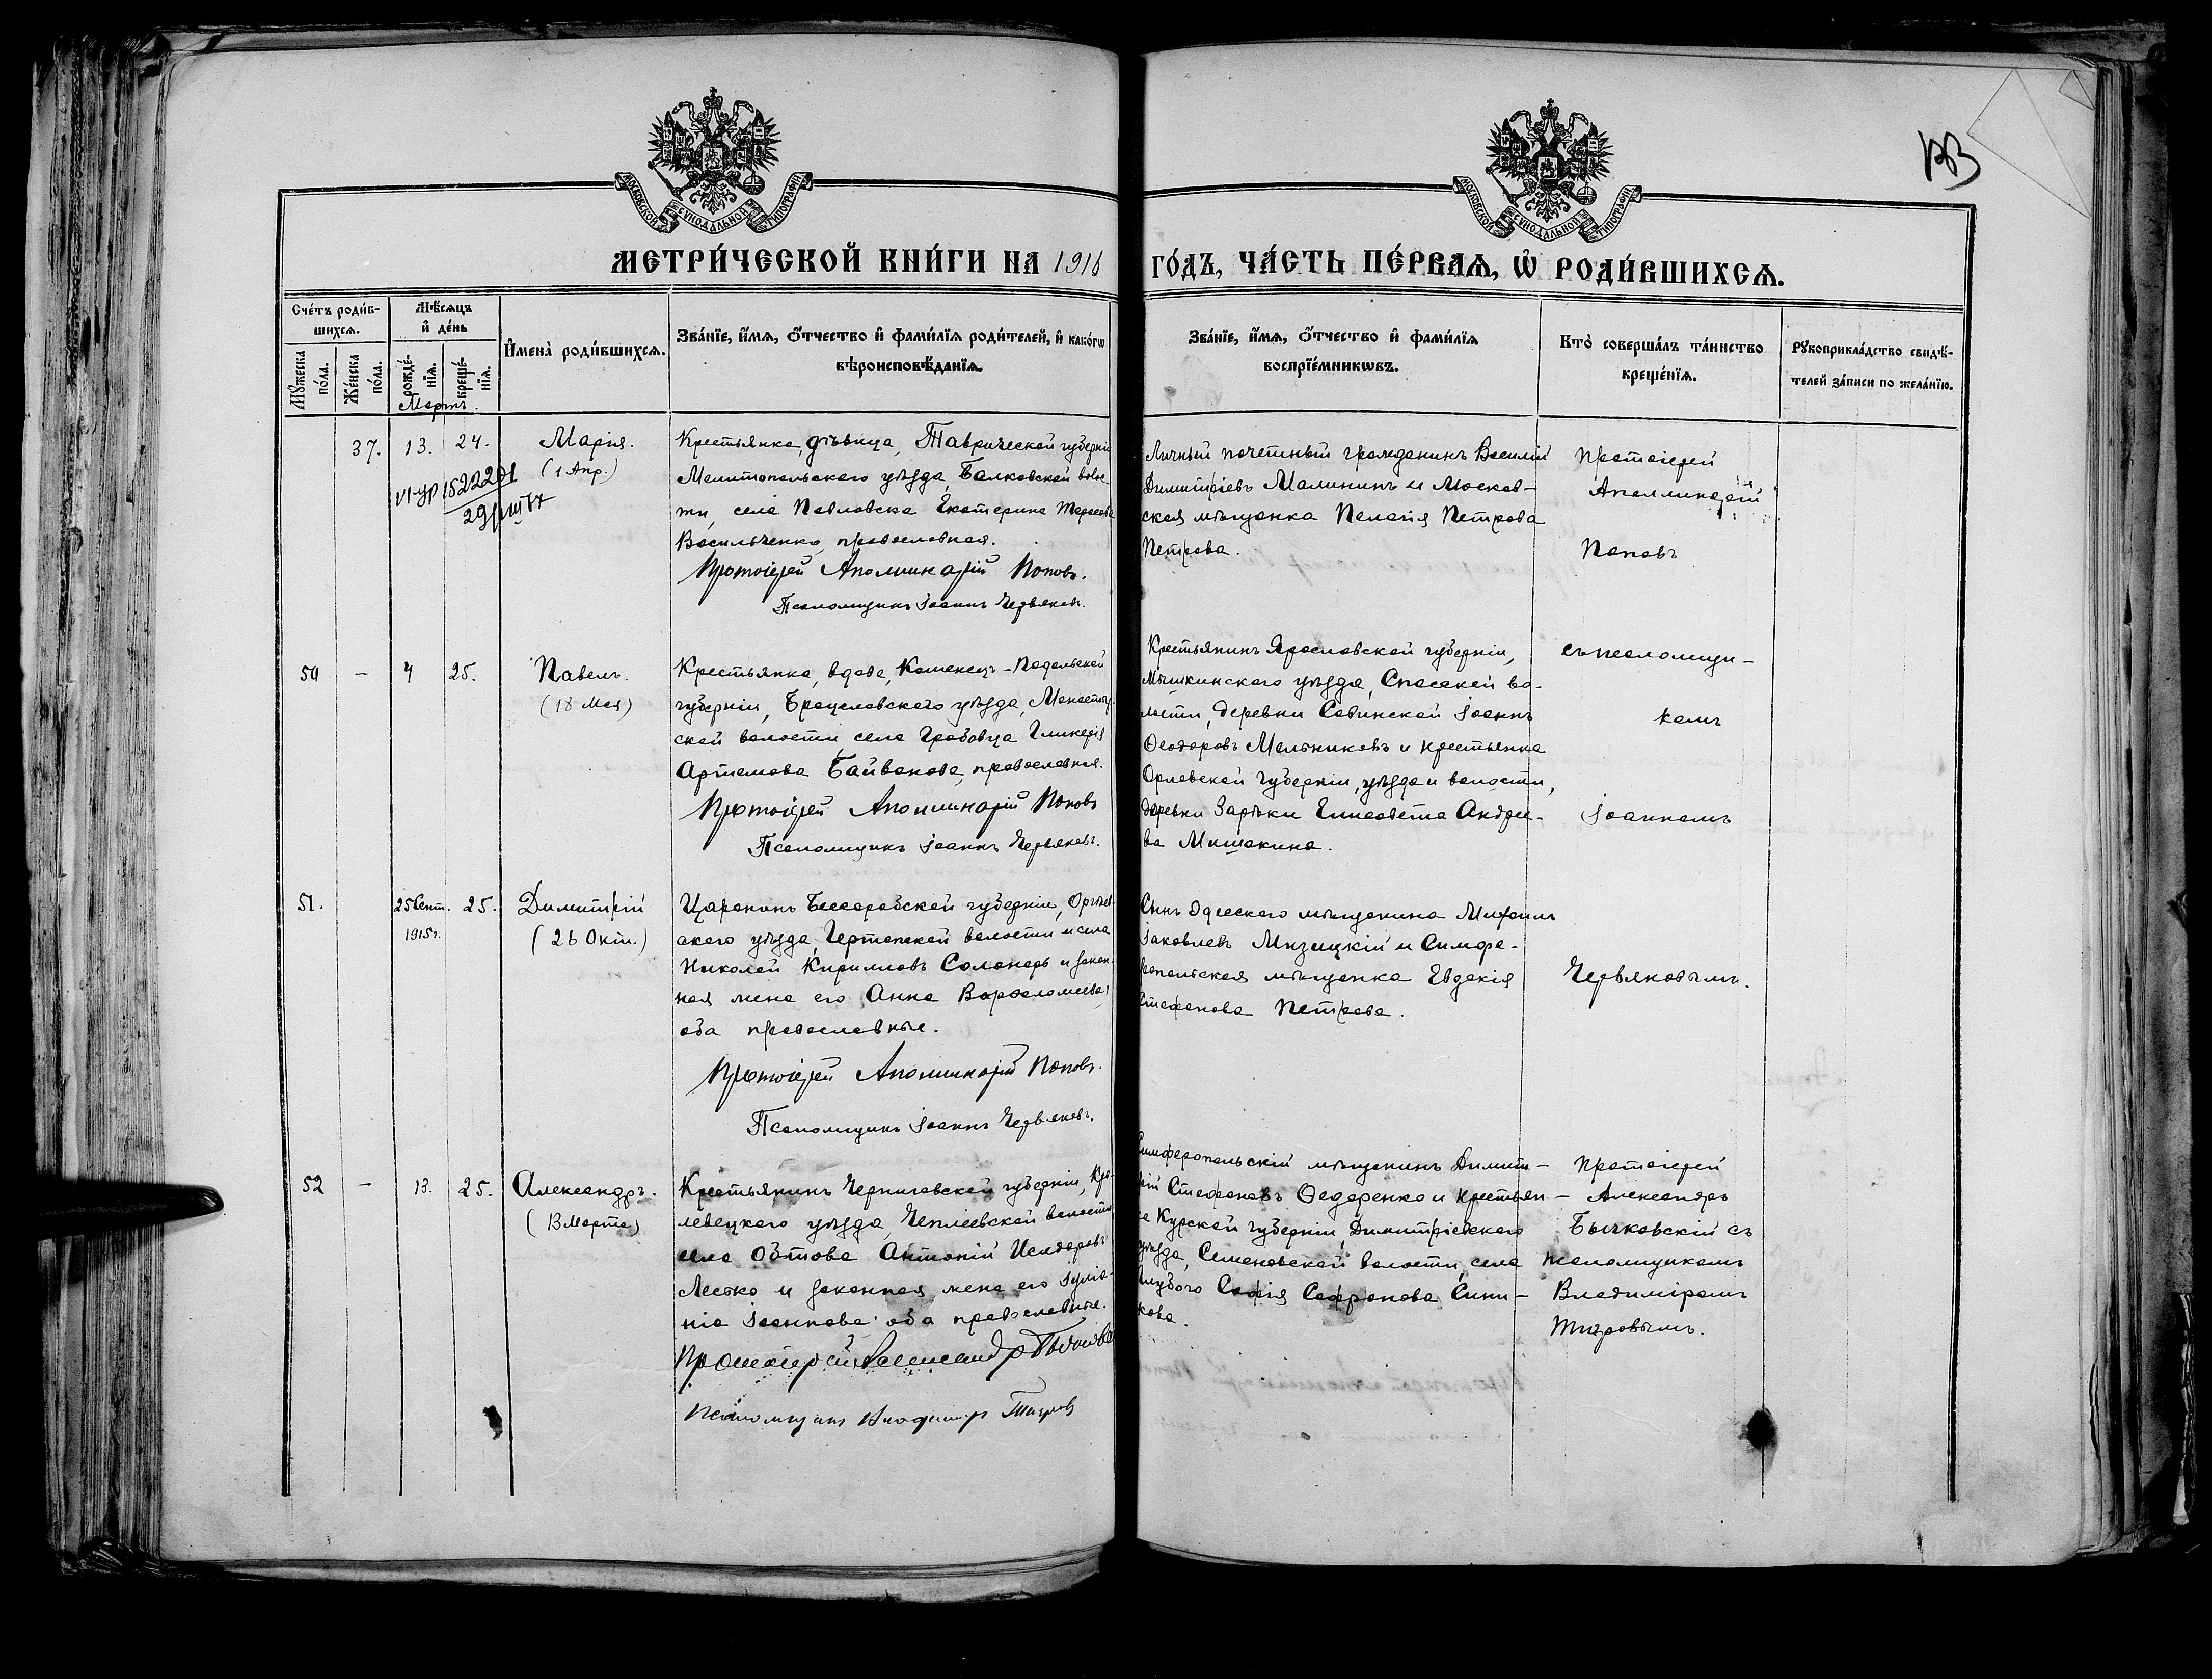 МОСКОВСКОЙ СѴНОДАЛЬНОЙ ТИПОГРАФІИ
МОСКОВСКОЙ СѴНОДАЛЬНОЙ ТИПОГРАФІИ
МЕТРИ́ЧЕСКОЙ КНИ́ГИ НА 1916 ГО́ДЪ, ЧА́СТЬ ПЕ́РВАЯ, Ѡ҆ РОДИ́ВШИХСЯ.
Сче́тъ роди́в-
шихся.
Мѣ́сяцъ
и҆ де́нь
Мꙋ́жеска по́ла.
Же́нска по́ла.
рожде́-
нїя.
креще́-
нїя.
И҆мена̀ роди́вшихся.
Зва́нїе, и҆́мя, ѻ҆́тчество и҆ фами́лїя роди́телей, и҆ како́гѡ
вѣроисповѣ́данїя.
Зва́нїе, и҆́мя, ѻ҆́тчество и҆ фами́лїя
воспрїе́мникѡвъ.
Кто̀ соверша́лъ та́инство
креще́нїя.
Рꙋкоприкла́дство свидѣ́-
телей за́писи по жела́нїю.
Мартъ.
37. 13. 24.
Марія.
(1 Апр.)
Крестьянка, дѣвица, Таврической губерніи
Мелитопольскаго уѣзда, Балковской волос-
ти, села Павловка Екатерина Тарасова
Васильченко, православная.
Протоіерей Аполлинарій Поповъ.
Псаломщикъ Іоаннъ Червяковъ.
Личный почетный гражданинъ Василій
Димитріевъ Малининъ и Москов-
ская мѣщанка Пелагія Петрова
Петрова.
Протоіерей
Аполлинарій
Поповъ
50 — 4 25.
Павелъ.
(18 Мая)
Крестьянка, вдова, Каменецъ-Подольской
губерніи, Брацлавскаго уѣзда, Монастыр-
ской волости, села Грабовца Гликерія
Артемова Байванова, православная.
Протоіерей Аполлинарій Поповъ
Псаломщикъ Іоаннъ Червяковъ.
Крестьянинъ Ярославской губерніи,
Мышкинскаго уѣзда, Спасской во-
лости, деревни Савинской Іоаннъ
Ѳеодоровъ Мельниковъ и крестьянка
Орловской губерніи, уѣзда и волости,
деревни Зарѣки Елисавета Андрее-
ва Мишакина.
съ псаломщи-
комъ
Іоанномъ
51. 25 Сент. 25.
1915 г.
Димитрій
(26 Окт.)
Царанинъ Бессарабской губерніи, Оргѣев-
скаго уѣзда, Чертопской волости и села
Николай Кирилловъ Солонарь и закон-
ная жена его Анна Варѳоломеева,
оба православные.
Протоіерей Аполлинарій Поповъ.
Псаломщикъ Іоаннъ Червяковъ.
Сынъ Одесскаго мѣщанина Михаилъ
Іаковлевъ Мизицкій и Симфе-
ропольская мѣщанка Евдокія
Стефанова Петрова.
Червяковымъ.
52 — 13. 25.
Александръ.
(13 Марта)
Крестьянинъ Черниговской губерніи, Кро-
левецкаго уѣзда, Чеплеевской волости,
села Обтова Антоній Исидоровъ
Лесько и законная жена его Іуліа-
нія Іоаннова оба православные.
Протоіерей Александръ
Псаломщикъ Владиміръ Тигровъ
Симферопольскій мѣщанинъ Димит-
рій Стефановъ Ѳедоренко и крестьян-
ка Курской губерніи, Димитріевскаго
уѣзда, Семеновской волости, села
Глубого Софія Сафронова Сини-
кова.
Протоіерей
Александръ
Бычковскій съ
псаломщикомъ
Владиміромъ
Тигровымъ.